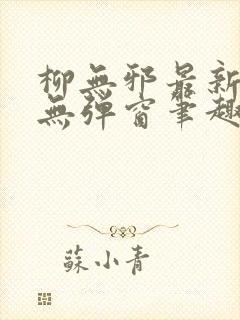 柳無邪最新
無彈窗筆趣
蘇小青